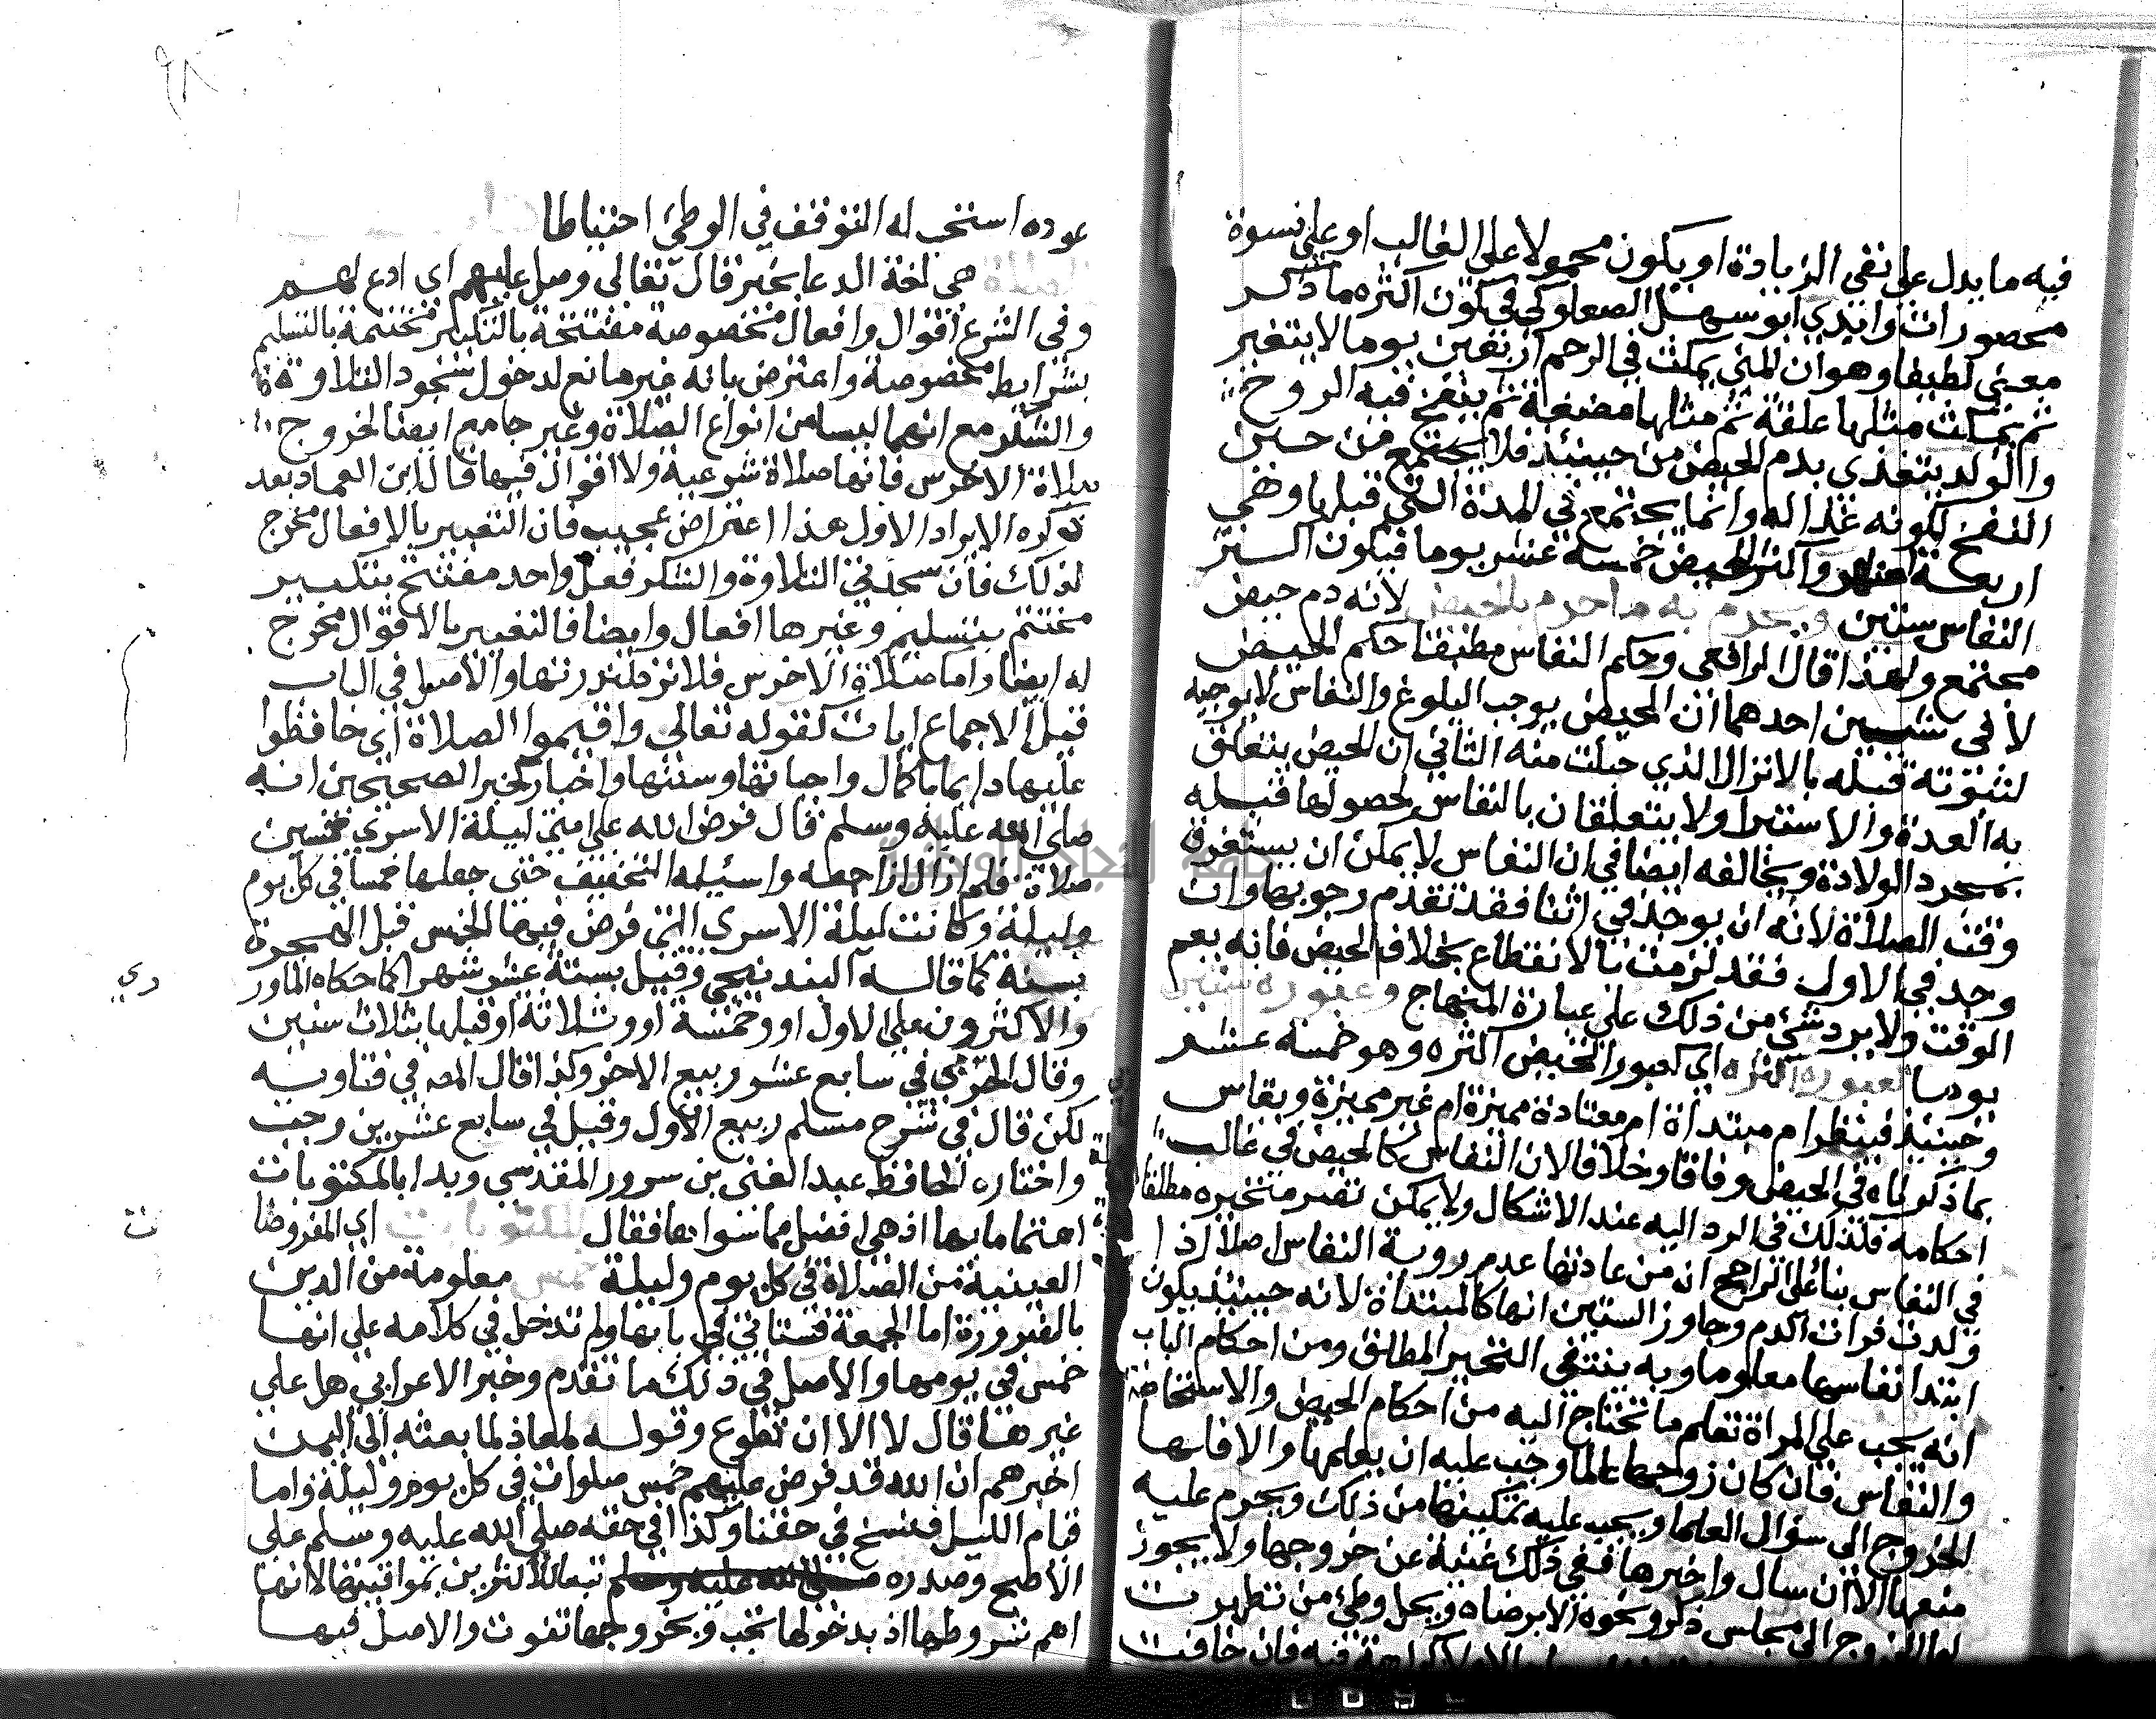 فيه ما يدل على نفي الزيادة او يكون محمولا على الغالب او على نسوة
محصورات وابدي ابو سهل الصعلوكي في كون اكثره ما ذكر
معنى لطيفا وهو ان المني يمكث في الرحم اربعين يوما لا يتغير
ثم يمكث مثلها علقة ثم مثلها مضغة ثم ينفخ فيه الروح
والولد يتغذى بدم الحيض من حينئذ فلا يجتمع من حين
النفخ لكونه غذا له وانما يجتمع في المدة التي قبلها وهي
اربعة اشهر واكثر الحيض خمسة عشر يوما فيكون اكثر
النفاس ستين ويحرم به ما حرم بالحيض لانه دم حيض
مجتمع ولهذا قال الرافعي وحكم النفاس مطلقا حكم الحيض
لا في شيين احدهما ان الحيض يوجب البلوغ والنفاس لا يوجبه
لثبوته قبله بالانزال الذي حبلت منه الثاني ان الحيض يتعلق
به العدة والاستبرا ولا يتعلقان بالنفاس لحصولها قبله
بمجرد الولادة ويخالفه ايضا في ان النفاس لا يمكن ان يستغرق
وقت الصلاة لانه ان يوجد في اثنا فقد تقدم وجوبها وان
وجد في الاول فقد لزمت بالانقطاع بخلاف الحيض فانه يعم
الوقت ولا يرد شئ من ذلك على عبارة المنهاج وعبوره ستين
يوما كعبوره اكثره اي كعبور الحيض اكثره وهو خمسة عشر
وحينئذ فينظر ام مبتداة ام معتادة مميزة ام غير مميزة ويقاس
بما ذكرناه في الحيض وفاقا وخلافا لان النفاس كالحيض في غالب
احكامه فكذلك في الرد اليه عند الاشكال ولا يمكن تصير متحيره مطلقا
في النفاس بنا على الراجح ان من عادتها عدم روية النفاس اصلا اذا
ولدت فرات الدم وجاوز الستين انها كالمبتداة لانه حينئذ يكون
ابتدا نفاسها معلوما وبه ينتفي التحير المطلق ومن احكام الباب
انه يجب على المراة تعلم ما تحتاج اليه من احكام الحيض والاستحاضة
والنفاس فان كان زوجها عالما وجب عليه ان يعلمها والا فلها
الخروج الى سؤال العلما ويجب عليه تمكينها من ذلك ويحرم عليه
منعها الا ان سال واخبرها ففي ذلك غنية عن خروجها ولا يجوز
لها الخروج الى مجلس ذكر ونحوه الا برضاه ويحل وطئ من تطهرت
كراهة فيه فان خافت
عوده استحب له التوقف في الوطئ احتياطا
هي لغة الدعا بخير قال تعالى وصل عليهم اي ادع لهم
وفي الشرع اقوال وافعال مخصوصة مفتتحة بالتكبير مختتمة بالتسليم
بشرايط مخصوصة واعترض بانه غير مانع لدخول سجود التلاوة
والشكر مع انهما ليسا من انواع الصلاة وغير جامع ايضا لخروج
صلاة الاخرس فانها صلاة شرعية ولا اقوال فيها قال ابن العماد بعد
ذكره الايراد الاول هذا اعتراض عجيب فان التعبير بالافعال مخرج
لذلك فان سجدتي التلاوة والشكر فعل واحد مفتتح بتكبير
مختتم بتسليم وغيرها افعال وايضا فالتعبير بالاقوال مخرج
له ايضا واما صلاة الاخرس فلا ترد لندرتها والاصل في الباب
قبل الاجماع ايات كقوله تعالى واقيموا الصلاة اي حافظوا
عليها دايما باكمال واجباتها وسننها واخبار كخبر الصحيحين انه
صلى الله عليه وسلم قال فرض الله على امتي ليلة الاسرى خمسين
صلاة فلم ازل اراجعه واسئله التخفيف حتى جعلها خمسا في كل يوم
وليلة وكانت ليلة الاسرى التي فرض فيها الخمس قبل الهجرة
بسنة كما قاله البندنيجي وقيل بستة عشر شهرا كما حكاه الماور
دي
والاكثرون على الاول او وخمسة او وثلاثة او قبلها بثلاث سنين
وقال الحربي في سابع عشر ربيع الاخر وكذا قال المص في فتاويه
لكن قال في شرح مسلم ربيع الاول وقيل في سابع عشرين رجب
واختاره الحافظ عبد الغني بن سرور المقدسي وبدا بالمكتوبات
اهتماما بها اذ هي افضل مما سواها فقال اي المفروضا
ت
العينية من الصلاة في كل يوم وليلة معلومة من الدين
بالضرورة اما الجمعة فستاتي في بابها ولم تدخل في كلامه على انها
خمس في يومها والاصل في ذلك ما تقدم وخبر الاعرابي هل علي
غيرها قال لا الا ان تطوع وقوله لمعاذ لما بعثه الى اليمن
اخبرهم ان الله قد فرض عليهم خمس صلوات في كل يوم وليلة واما
قيام الليل فنسخ في حقنا وكذا في حقه صلى الله عليه وسلم على
الاصح وصدره تبعا للاكثرين بمواقيتها لانها
اهم شروطها اذ بدخولها تجب وبخروجها تفوت والاصل فيها